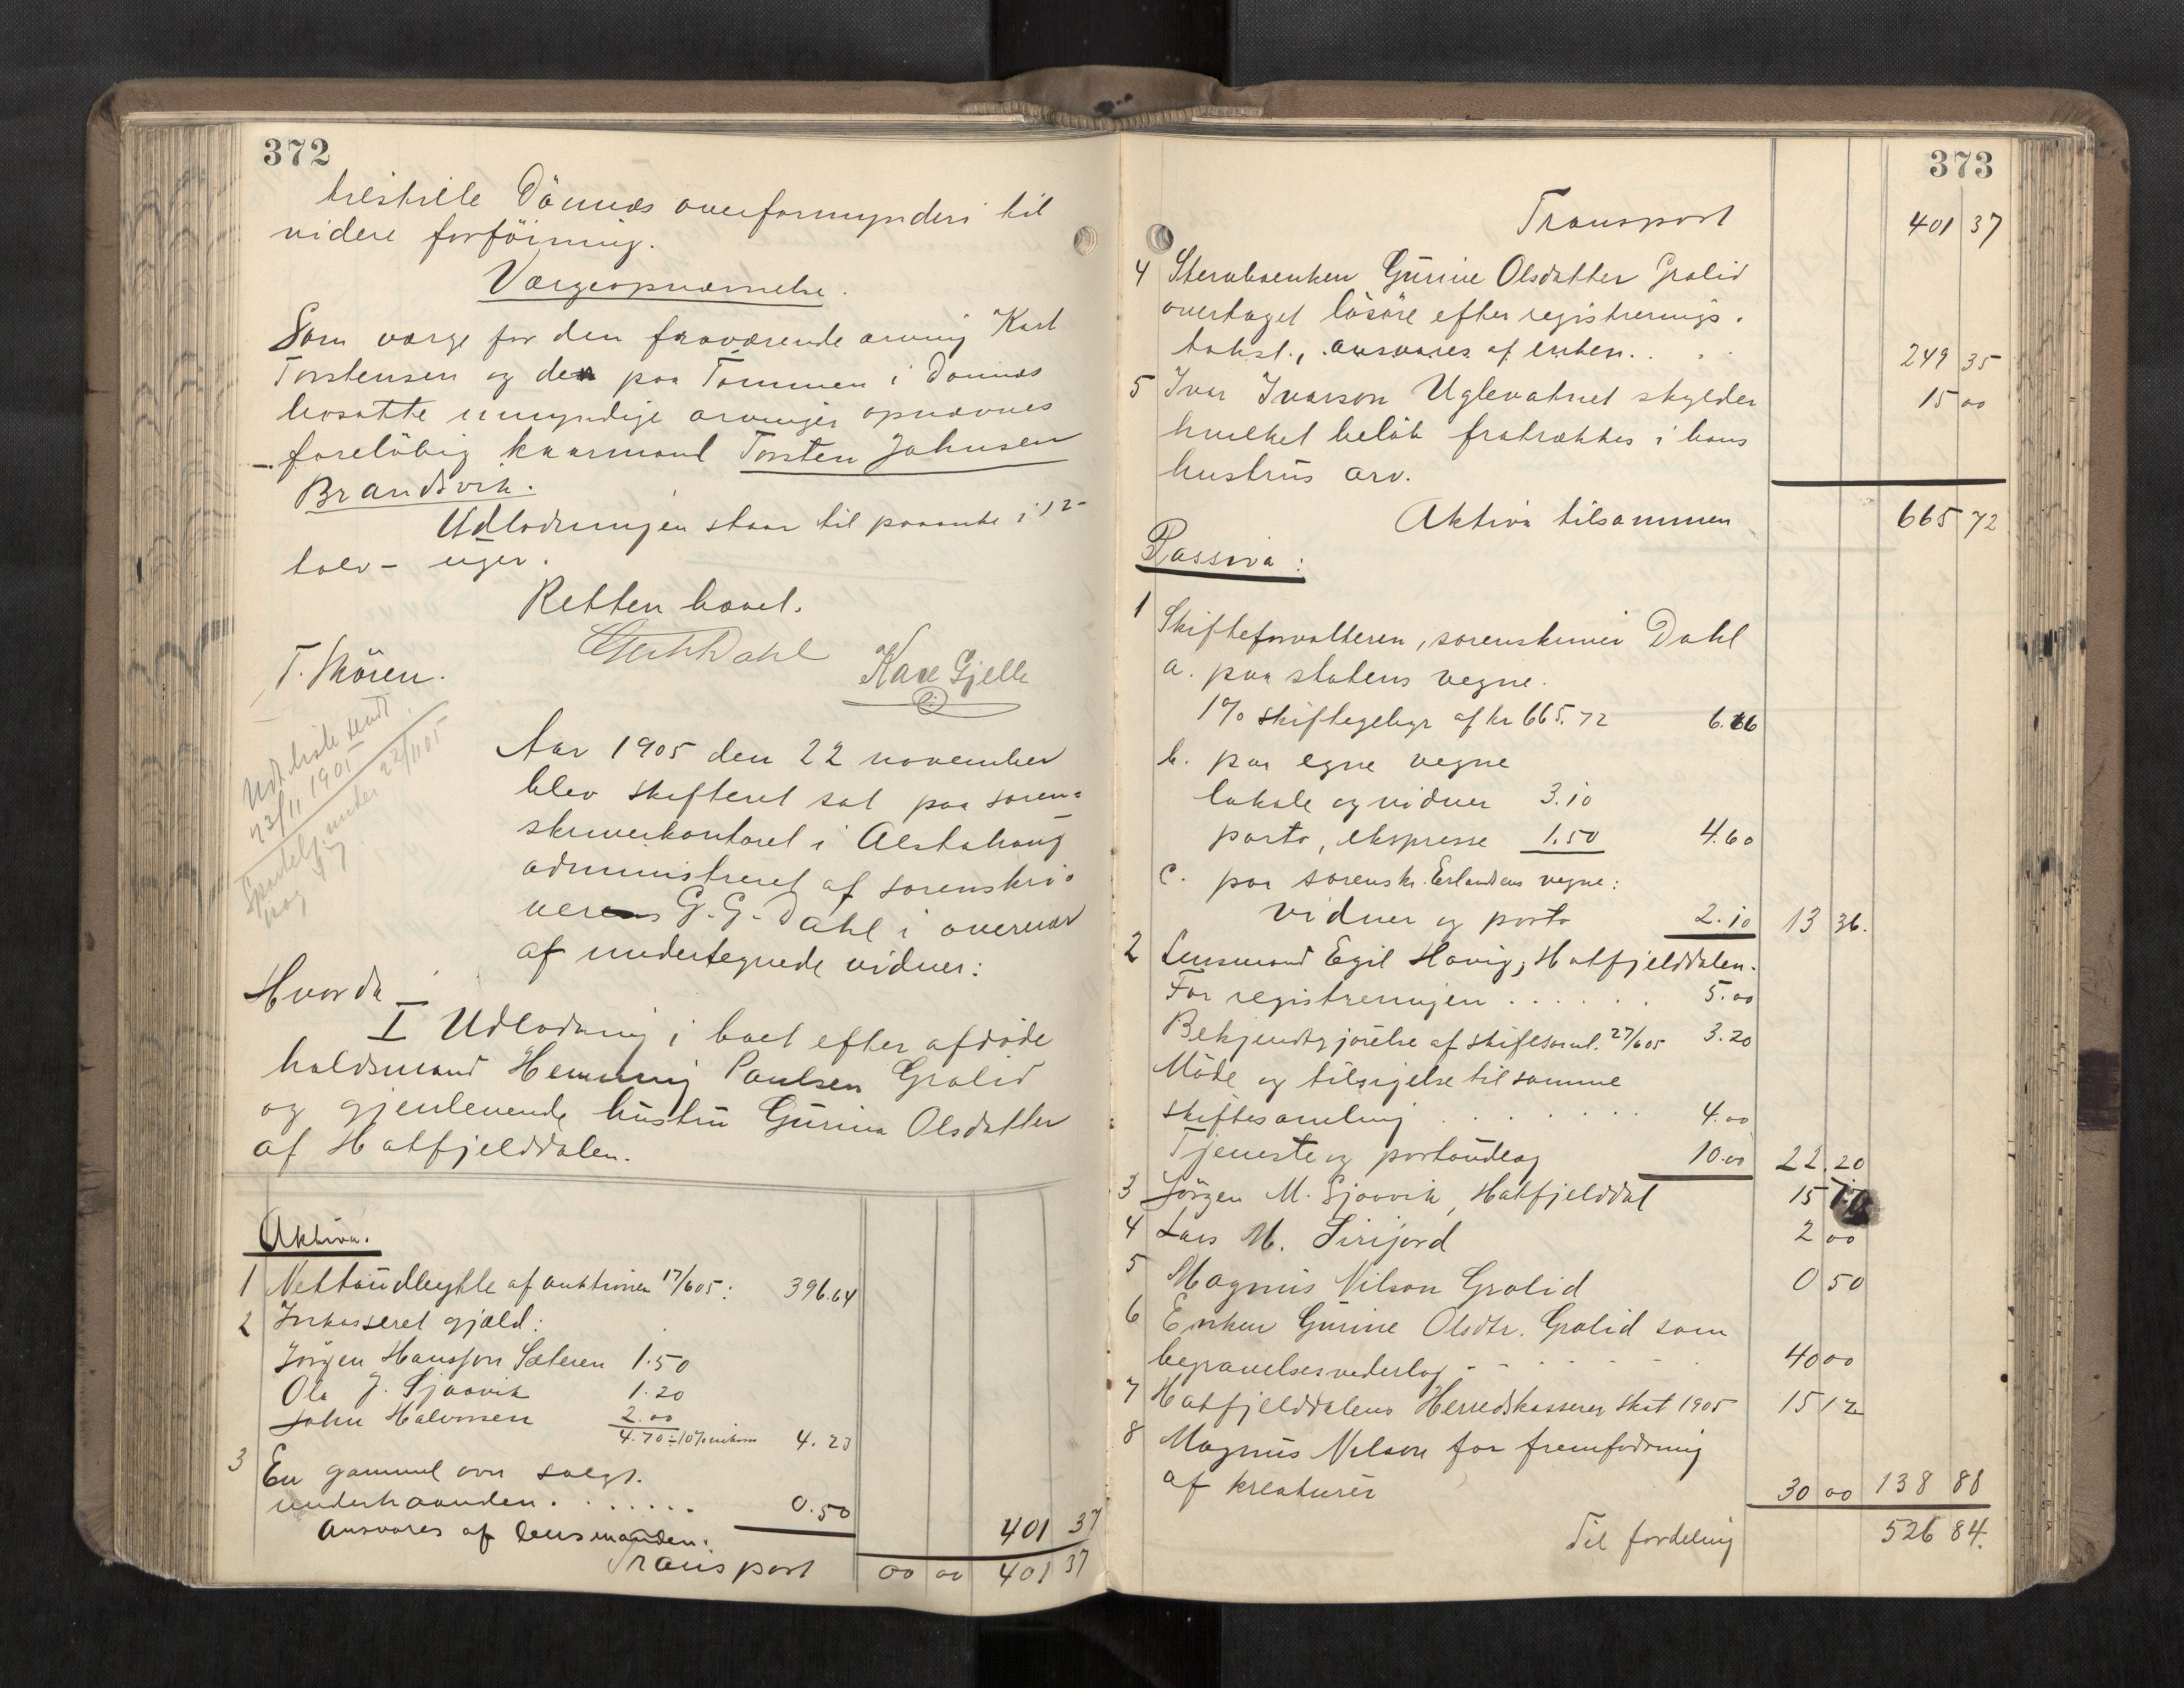 372
tilstille Dönnes overformynderi til
videre forföining.
Værgeopnævnelse.
Som værge for den fraværende arving Karl
Torstensen og den paa Tommen i Dönnes
bosatte umyndige arvinger opnævnes
foreløbig kaarmand Torsten Johnsen
Brandsvik.
Udlodningen staar til paaanke i 12-
tolv- uger.
Retten hævet.
Dahl
T. Mören. Kare Gjelle
Udskrift sendt
23/11 1905
Sportel under 22/11 05
pag 97
Aar 1905 den 22 november
blev skifteret sat paa soren-
skriverkontoret i Alstahaug
administreret af sorenskri-
veren G. G. Dahl i overvær
af undertegnede vidner:
Hvorda
I Udlodning i boet efter afdöde
holdsmand Hemming Paulsen Grolid
og gjenlevende hustru Gurine Olsdatter
af Hatfjelddalen.
Aktiva.
1 Nettoudbytte af auktionen 17/6 05: 396.64
2 Inkasseret gjæld:
Jörgen Hansson Sæteren 1.50
Ole J. Sjaavik 1.20
John Halvorsen 2.00
4.70 ÷ 10% inkom 4.23
3 En gammel ovn solgt
underhaanden. . . . . . . 0.50
Ansvares af lensmanden. 401 37
Transport 00 00 401 37
373
Transport 401 37
4 Stervboenken Gurine Olsdatter Grolid
overtaget lösöre efter registrerings-
takst., ansvares af enken. . . . 249 35
5 Ivar Ivarson Uglevatnet skylder 15 00
hvilket belöb fratrækkes i hans
hustrus arv.
Aktiva tilsammen 665 72
Passiva:
1 Skifteforvalteren, sorenskriver Dahl
a. paa statens vegne.
1% skiftegebyr af kr 665.72 6.66
b. paa egne vegne
lokale og vidner 3.10
porto, ekspresse 1.50 4.60
c. paa sorenskr. Erlandsens vegne:
vidner og porto 2.10 13 36.
2 Lensmand Egil Havig, Hatfjelddalen.
For registreringen . . . . . . 5.00
Bekjendtgjörelse af skiftesaml. 27/6 05 3.20
Möde og tilsigelse til samme
skiftesamling . . . . . . . 4.00
Tjeneste og portoudlæg 10.00 22.20
3 Jörgen M. Sjaavik, Hatfjelddal 15 70
4 Lars M. Sirijord 2 00
5 Magnus Nilson Grolid 0 50
6 Enken Gurine Olsdtr. Grolid som
begravelsesvederlag - - - - - - 40 00
7 Hatfjelddalens Herredskasserer skat 1905 15 12
8 Magnus Nilson for fremfodring
af kreaturer 30 00 138 88
Til fordeling 526 84.